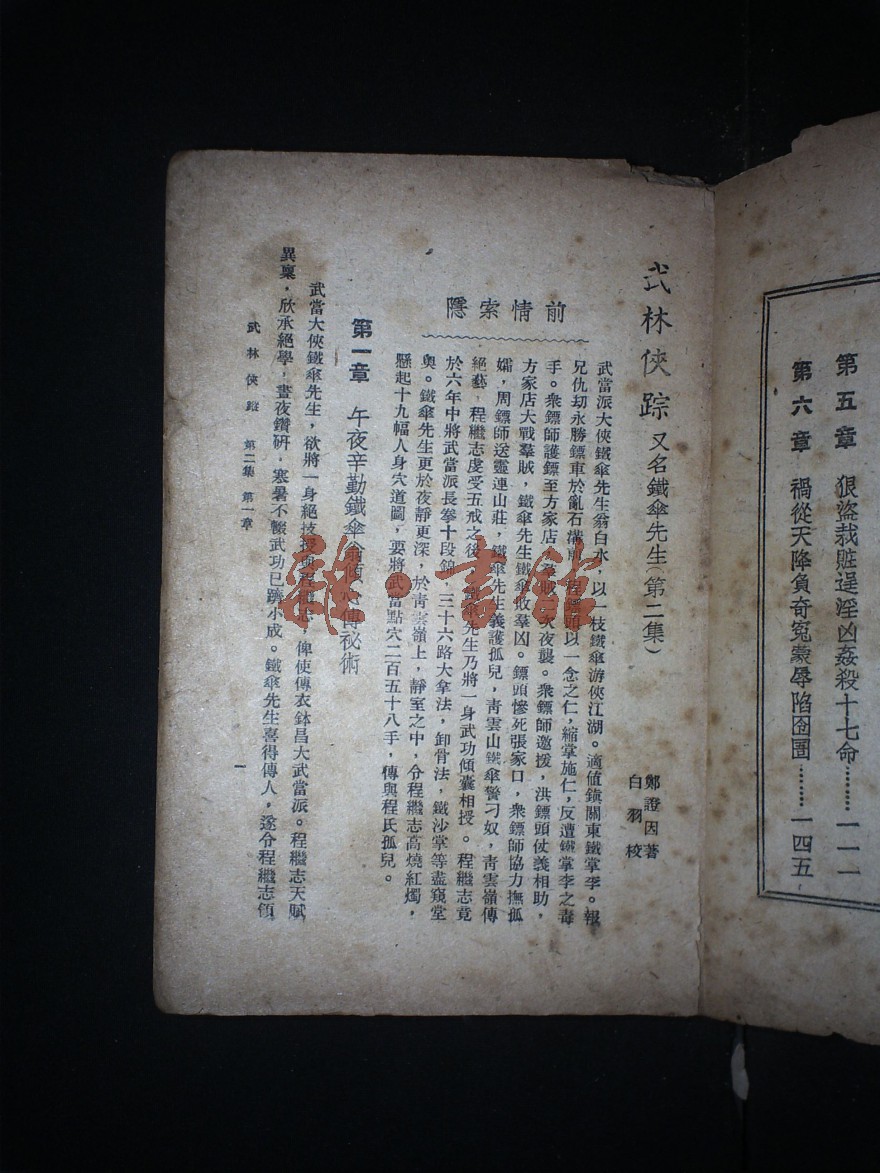 第五章　狠盜栽贓逞淫凶姦殺十七命………一一一
第六章　禍從天降負奇冤蒙辱陷囹圄………一四五
武林俠踪 又名鐵傘先生(第二集)
鄭證因著
白羽校
前情索隱
武當派大俠鐵傘先生翁白水，以一枝鐵傘游俠江湖。適值鎮關東鐵掌李。報
兄仇刧永勝鏢車於亂石溝
鏢頭以一念之仁，縮掌施仁，反遭鐵掌李之毒
手。衆鏢師護鏢至方家店
夜襲。衆鏢師邀援，洪鏢頭仗義相助，
方家店大戰羣賊，鐵傘先生鐵傘敗羣凶。鏢頭慘死張家口，衆鏢師協力撫孤
孀，周鏢師送靈連山莊，鐵傘先生義護孤兒，靑雲山鐵傘警刁奴，靑雲嶺傳
絕藝，程繼志虔受五戒之後，鐵傘先生乃將一身武功傾囊相授。程繼志竟
於六年中將武當派長拳十段錦，三十六路大拿法，卸骨法，鐵沙掌等盡窺堂
奧。鐵傘先生更於夜靜更深，於靑雲嶺上，靜室之中，令程繼志高燒紅燭，
懸起十九幅人身穴道圖，要將武當點穴二百五十八手，傳與程氏孤兒。
第一章　午夜辛勤鐵傘翁
傳祕術
武當大俠鐵傘先生，欲將一身絕技授與程繼志，俾使傳衣鉢昌大武當派。程繼志天賦
異稟，欣承絕學，晝夜鑽研，寒暑不輟武功已躋小成。鐵傘先生喜得傳人，遂令程繼志領
武林俠蹤　第二集　第一章
一
雜·書館